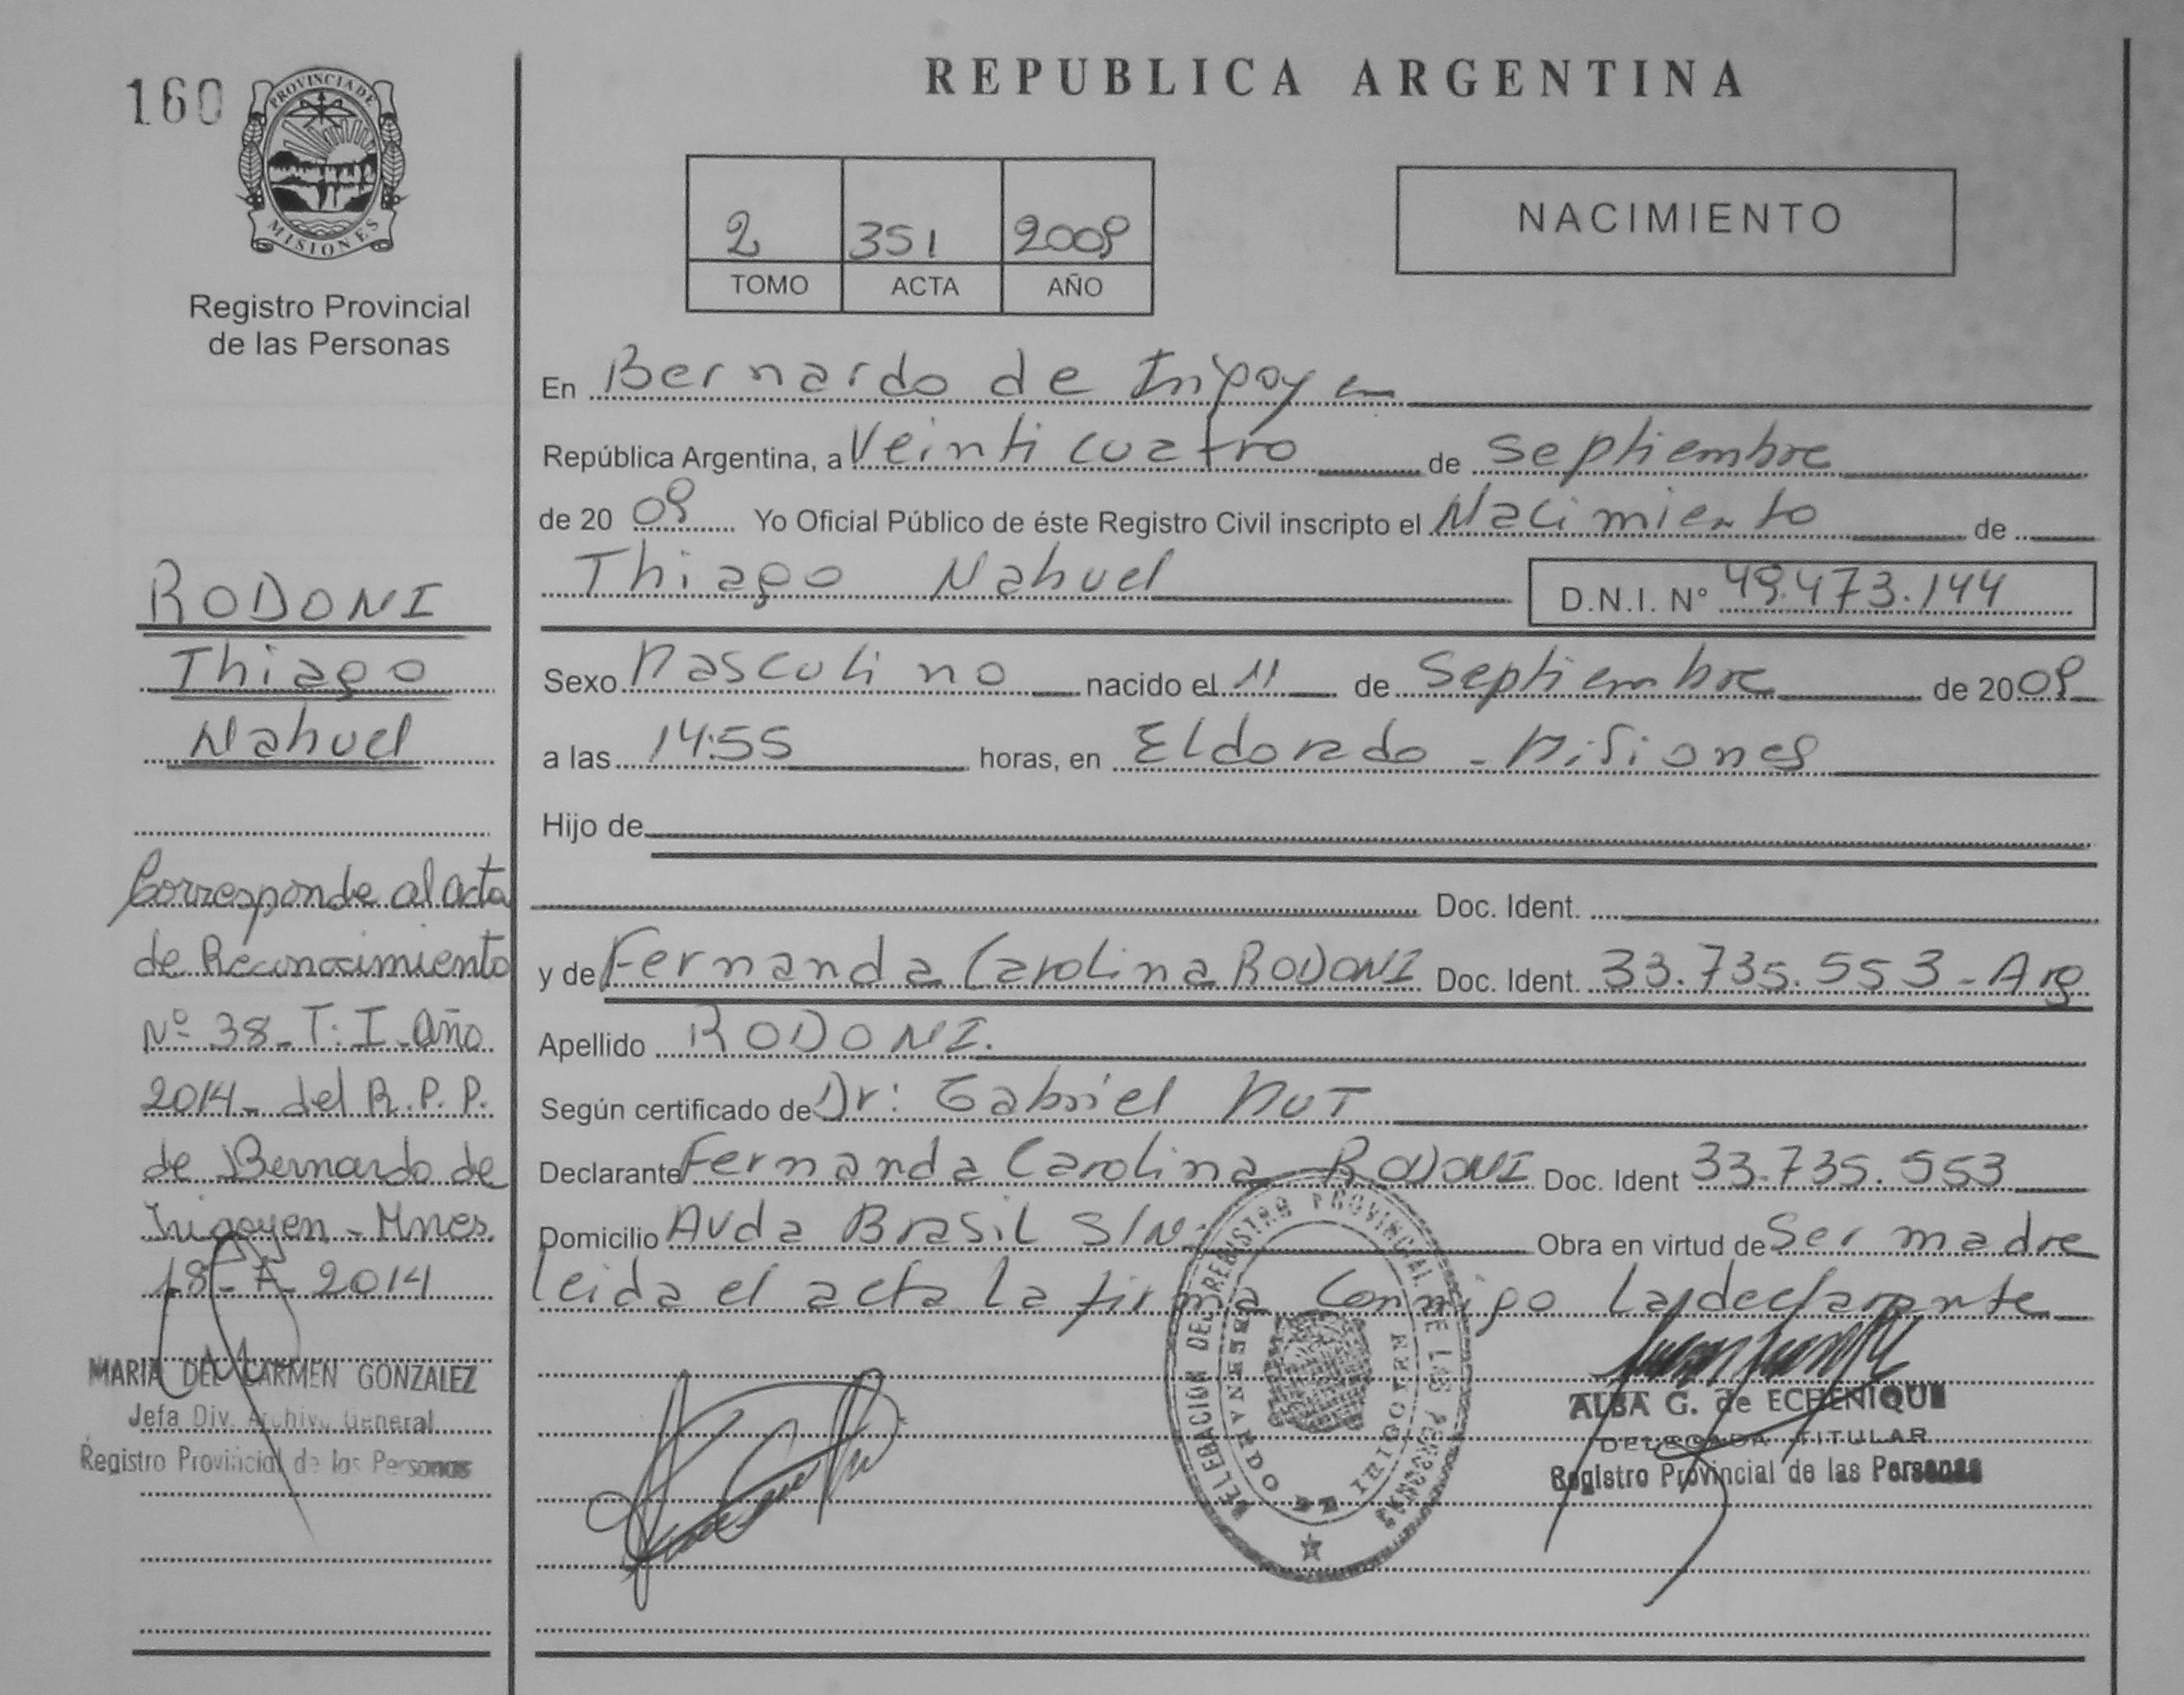 160
PROVINCIA DE
MISIONES
Registro Provincial
de las Personas
REPUBLICA ARGENTINA
2 351 2009
TOMO ACTA AÑO
NACIMIENTO
En Bernardo de Irigoyen
República Argentina, a Veinticuatro de Septiembre
de 20 09 Yo Oficial Público de éste Registro Civil inscripto el Nacimiento de
Thiago Nahuel D.N.I. N° 49.473.144
Sexo Masculino nacido el 11 de Septiembre de 20 09
a las 14:55 horas, en Eldorado - Misiones
Hijo de
Doc. Ident.
y de Fernanda Carolina RODONI Doc. Ident. 33.735.553 - Arg
Apellido RODONI.
Según certificado de Dr: Gabriel
Declarante Fernanda Carolina RODONI Doc. Ident 33.735.553
Domicilio Avda Brasil S/N. Obra en virtud de Ser madre
leida el acta la firma Conmigo La declarante
RODONI
Thiago
Nahuel
Corresponde al acta
de Reconocimiento
Nº 38 - T: I - Año
2014 - del R.P.P.
de Bernardo de
Irigoyen - Mnes.
18 - 2014
MARIA DEL CARMEN GONZALEZ
Jefa Div. Archivo General
Registro Provincial de las Personas
DELEGACION DEL REGISTRO PROVINCIAL DE LAS PERSONAS
BERNARDO DE IRIGOYEN
ALBA G. de ECHENIQUE
DELEGADA TITULAR
Registro Provincial de las Personas